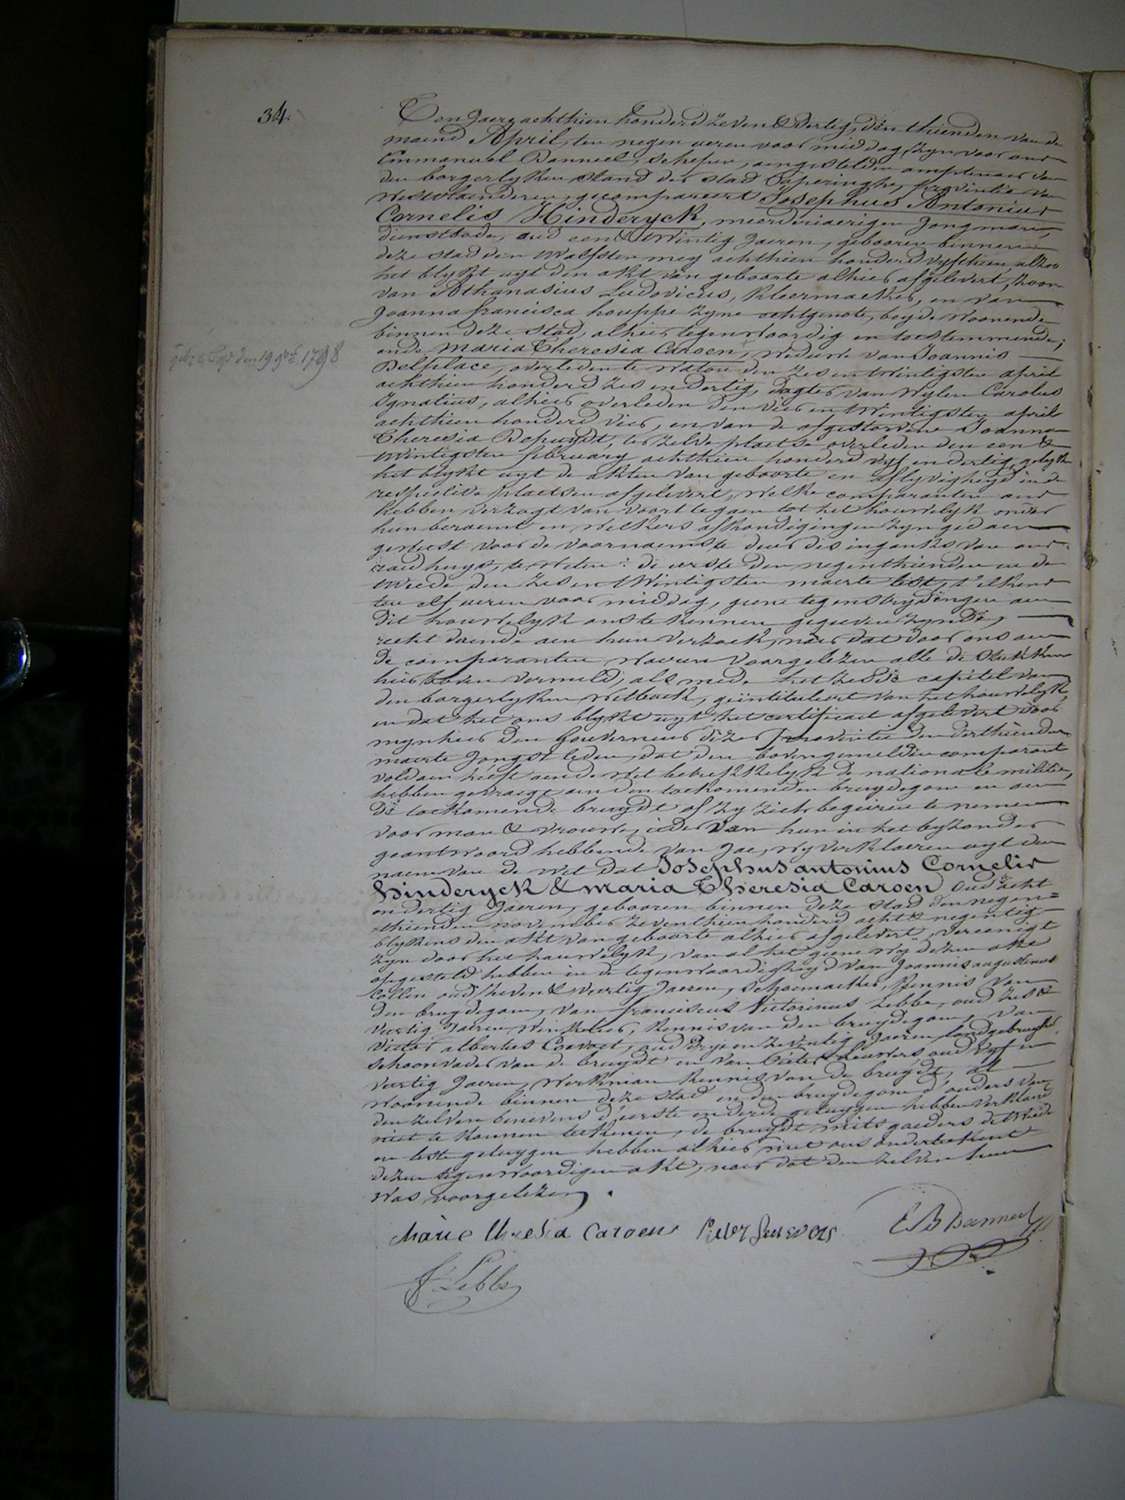 34.
Ten Jaere achthien honderd zeven & dertig, den thienden van de
maend April, ten negen ueren voor middag, zyn voor ons
Emmanuel Banneel, schepen, aengestelden amptenaer van
den borgerlyken stand der stad Poperinghe, provintie van
Westvlaenderen, gecompareert Josephus Antonius
Cornelis Hinderyck, meerderjaerigen Jongman,
dienstbode, oud een & twintig Jaeren, gebooren binnen
deze stad den twalfsten mey achthien honderd vyfthien, alzoo
het blykt uyt den akt van geboorte alhier afgelevert, zoon
van Athanasius Ludovicus, kleermaeker, en van
Joanna francisca houppe zyne echtgenote, beyde woonende
binnen deze stad, alhier tegenwoordig en toestemmende;
ende Maria Theresia Caroen, weduwe van Joannis
Delplace, overleden te Watou den zes en twintigsten april
achthien honderd zes en dertig, dogter van wylen Carolus
Ignatius, alhier overleden den vier en twintigsten april
achthien honderd vier, en van de afgestorvene Joanna
Theresia Depuydt, ter zelve plaetse overleden den een &
twintigsten february achthien honderd vyf en dertig, gelyk
het blykt uyt de akten van geboorte en aflyvigheyd in de
respective plaetsen afgelevert, welke comparanten ons
hebben verzogt van voort te gaen tot het houwelyk onder
hun beraemt en welkers afkondigingen zyn gedaen
geweest voor de voornaemste deur des ingankx van ons
raedhuys, te weten: de eerste den negenthienden en de
tweede den zes en twintigsten maerte lest, t'elkens
ten elf ueren voor middag, geene tegenstrydingen aen
dit houwelyk ons te kennen gegeven zynde,
recht doende aen hun verzoek, naer dat door ons aen
de comparanten waren voorgelezen alle de stukken
hier boven vermeld, als mede het zesde capitel van
den borgerlyken wetboek, geintituleert van het houwelyk,
en dat het ons blykt uyt het certificaet afgelevert door
mynheer den Gouverneur dezer provintie den derthienden
maerte Jongst leden, dat den bovengemelden comparant
voldaen heeft aen de wet betrekkelyk de nationale militie,
hebben gevraegt aen den toekomenden bruydegom en aen
de toekomende bruydt of zy zich begeiren te nemen
voor man & vrouwe, ieder van hun in het byzonder
geantwoord hebbende van Jae, wy verklaeren uyt den
naem van de wet dat Josephus antonius Cornelis
hinderyck & maria Theresia Caroen oud acht
en dertig Jaeren, gebooren binnen deze stad den negen=
thienden november zeventhien honderd acht & negentig
blykens den akt van geboorte alhier afgelevert, vereenigt
zyn door het houwelyk, van al het geene wy dezen akt
opgesteld hebben in de tegenwoordigheyd van Joannis augustinus
Collen oud zeven & veertig Jaeren, schoenmaeker, kennis van
den bruydegom, van franciscus Victorinus Lebbe, oud zes &
veertig Jaeren, winkelier, kennis van den bruydegom, van
Victor albertus Coevoet, oud drye en zeventig Jaeren, landgebruyker
schoonvader van de bruydt en van Pieter Leuwers, oud vyf en
veertig Jaeren, werkman kennis van de bruydt, al
woonende binnen deze stad en den bruydegom d'ouders van
den zelven benevens d'eerste en derde getuygen hebben verklaert
niet te konnen teekenen, de bruydt mitsgaeders de tweede
en leste getuygen hebben alhier met ons onderteekent
dezen tegenwoordigen akt, naer dat den zelven hun
was voorgelezen.
Marie Theresia Caroen Pieter Leuwers E B Banneel
F. Lebbe